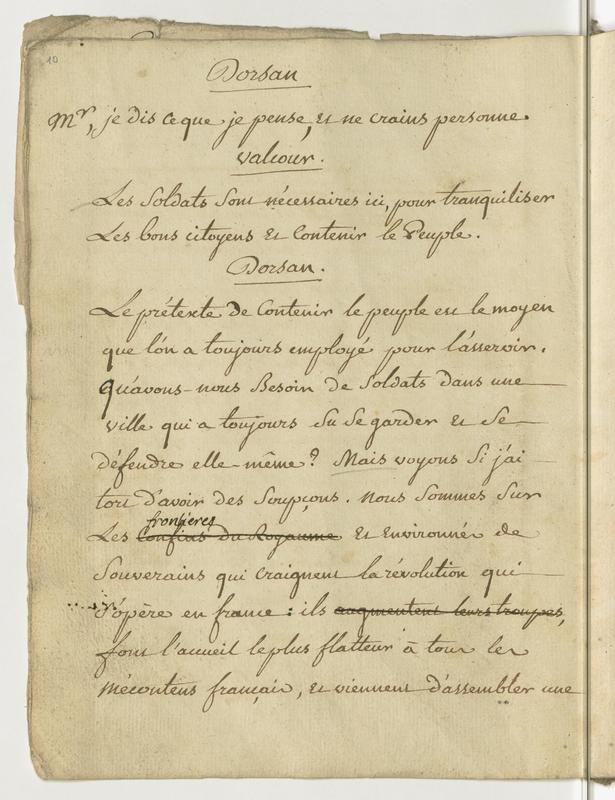 10
Dorsan
Mr, je dis ce que je pense, et ne crains personne.
Valcour.
Les Soldats Sont nécessaires ici, pour tranquiliser
Les bons citoyens et Contenir le Peuple.
Dorsan.
Le prétexte de Contenir le peuple est le moyen
que l'on a toujours employé pour l'asservir.
Qu'avons-nous Besoin de Soldats dans une
ville qui a toujours Su Se garder et Se
défendre elle-même? Mais voyons Si j'ai
tort d'avoir des Soupçons. Nous Sommes Sur
frontieres
Les Confins du Royaume et Environnés de
Souverains qui Craignent la révolution qui
S'opère en france: ils augmentent leurs troupes,
font l'accueil le plus flatteur à tous les
Mécontens français, et viennent d'assembler une